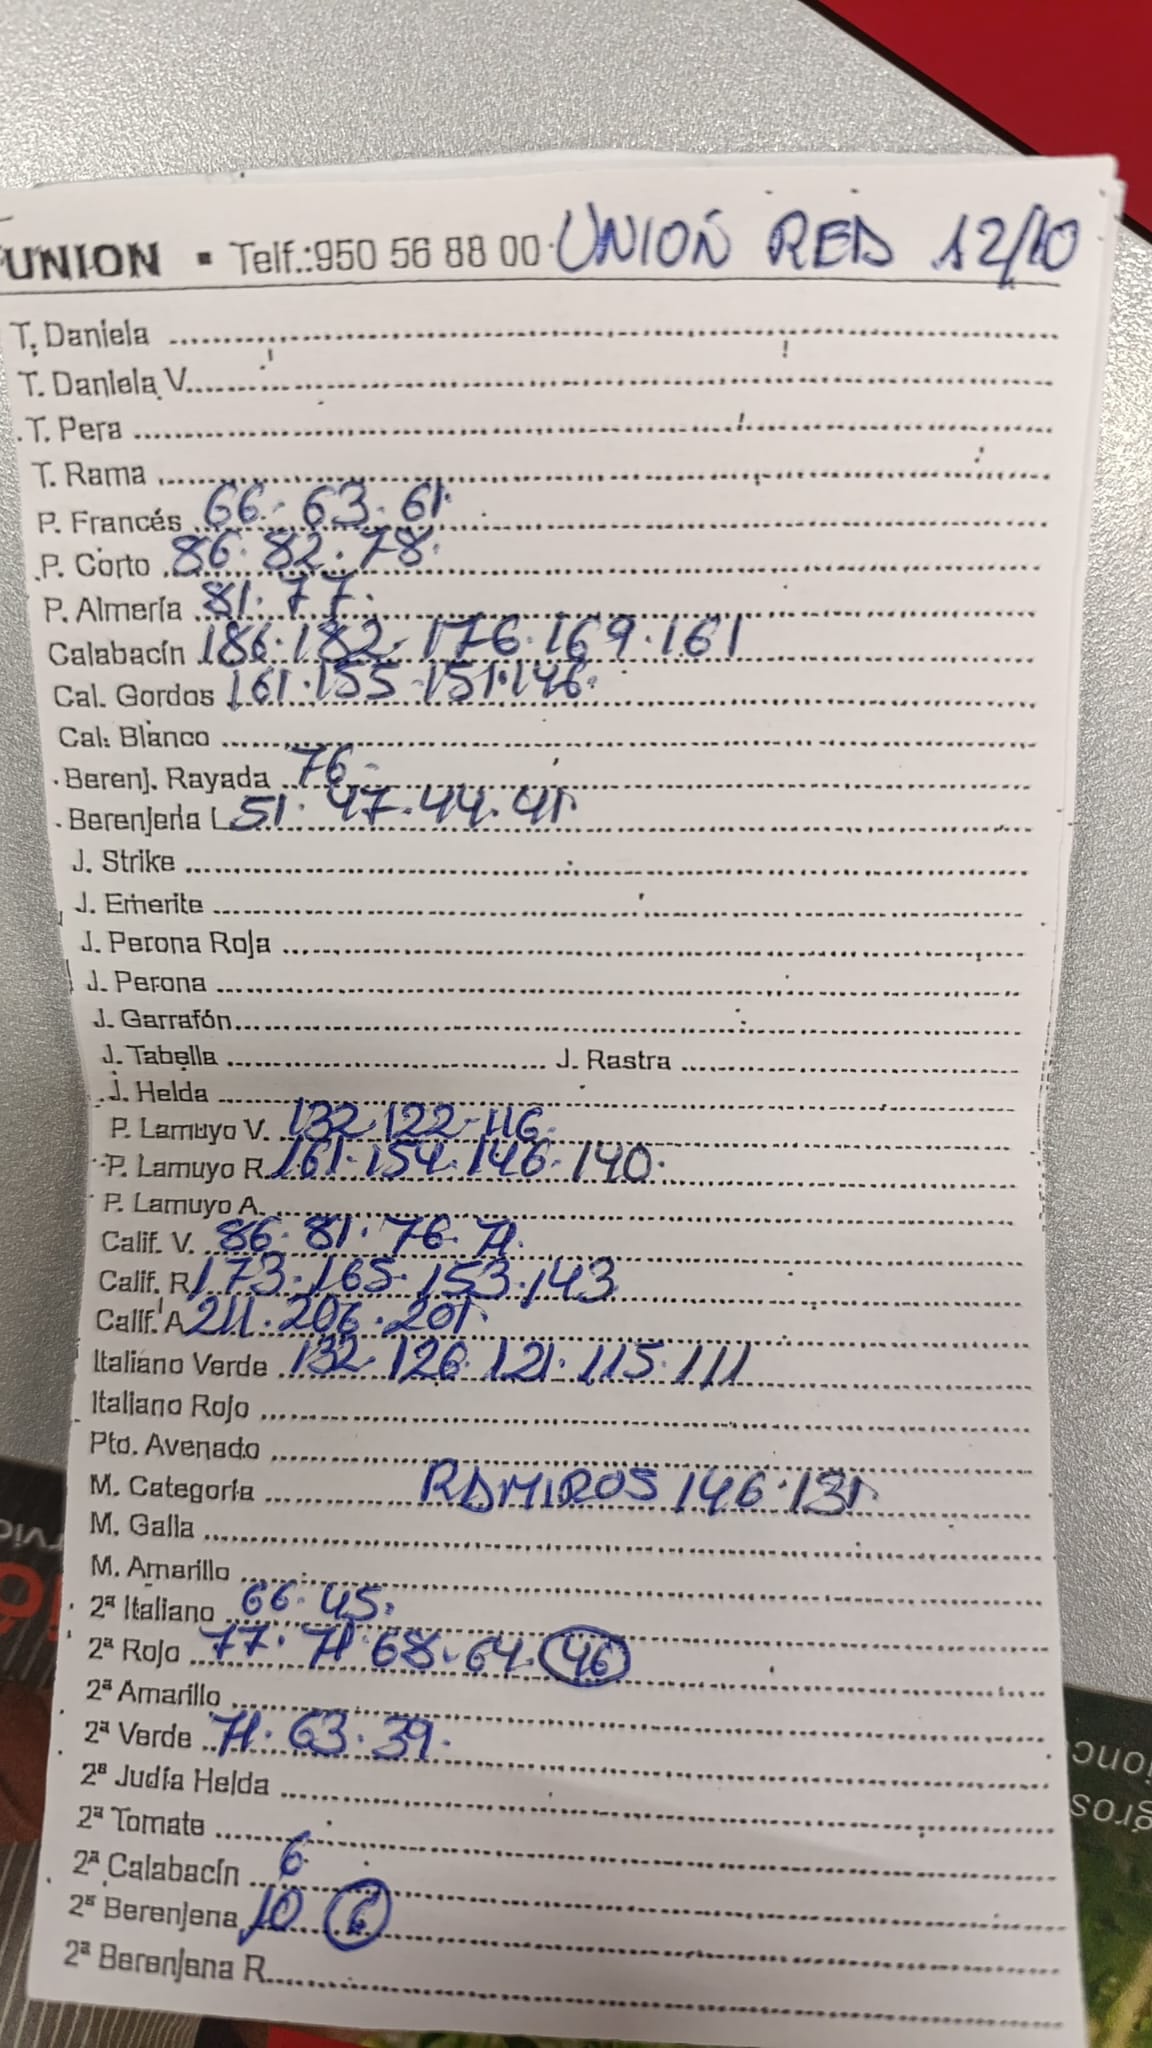 UNION ▪ Telf.:950 56 88 00 UNION RED 12/10
T. Daniela
T. Daniela V.
T. Pera
T. Rama
P. Francés 66. 63. 61.
P. Corto 86. 82. 78.
P. Almería 81. 77.
Calabacín 186. 182. 176. 169. 161
Cal. Gordos 161. 155. 151. 146.
Cal. Blanco
Berenj. Rayada 76.
Berenjena L 51. 47. 44. 41.
J. Strike
J. Emerite
J. Perona Roja
J. Perona
J. Garrafón
J. Tabella J. Rastra
J. Helda
P. Lamuyo V. 132. 122. 116.
P. Lamuyo R. 161. 154. 146. 140.
P. Lamuyo A.
Calif. V. 86. 81. 76. 71.
Calif. R 173. 165. 153. 143
Calif. A 211. 206. 201.
Italiano Verde 132. 126. 121. 115. 111
Italiano Rojo
Pto. Avenado
M. Categoría RAMIROS 146. 131.
M. Galla
M. Amarillo
2ª Italiano 66. 45.
2ª Rojo 77. 71. 68. 64. 46
2ª Amarillo
2ª Verde 71. 63. 39.
2ª Judía Helda
2ª Tomate
2ª Calabacín 6
2ª Berenjena 10 6
2ª Berenjena R.